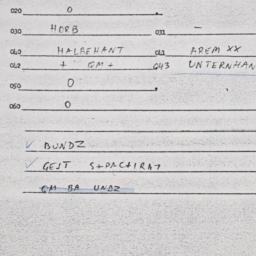 020 0
030 HORB 031 -
040 HALBEHANT 041 AREM XX
042 + GM + 043 UNTERNHAN
050 0
060 0
✓ BUNDZ
✓ GEST
GM BA UNDZ